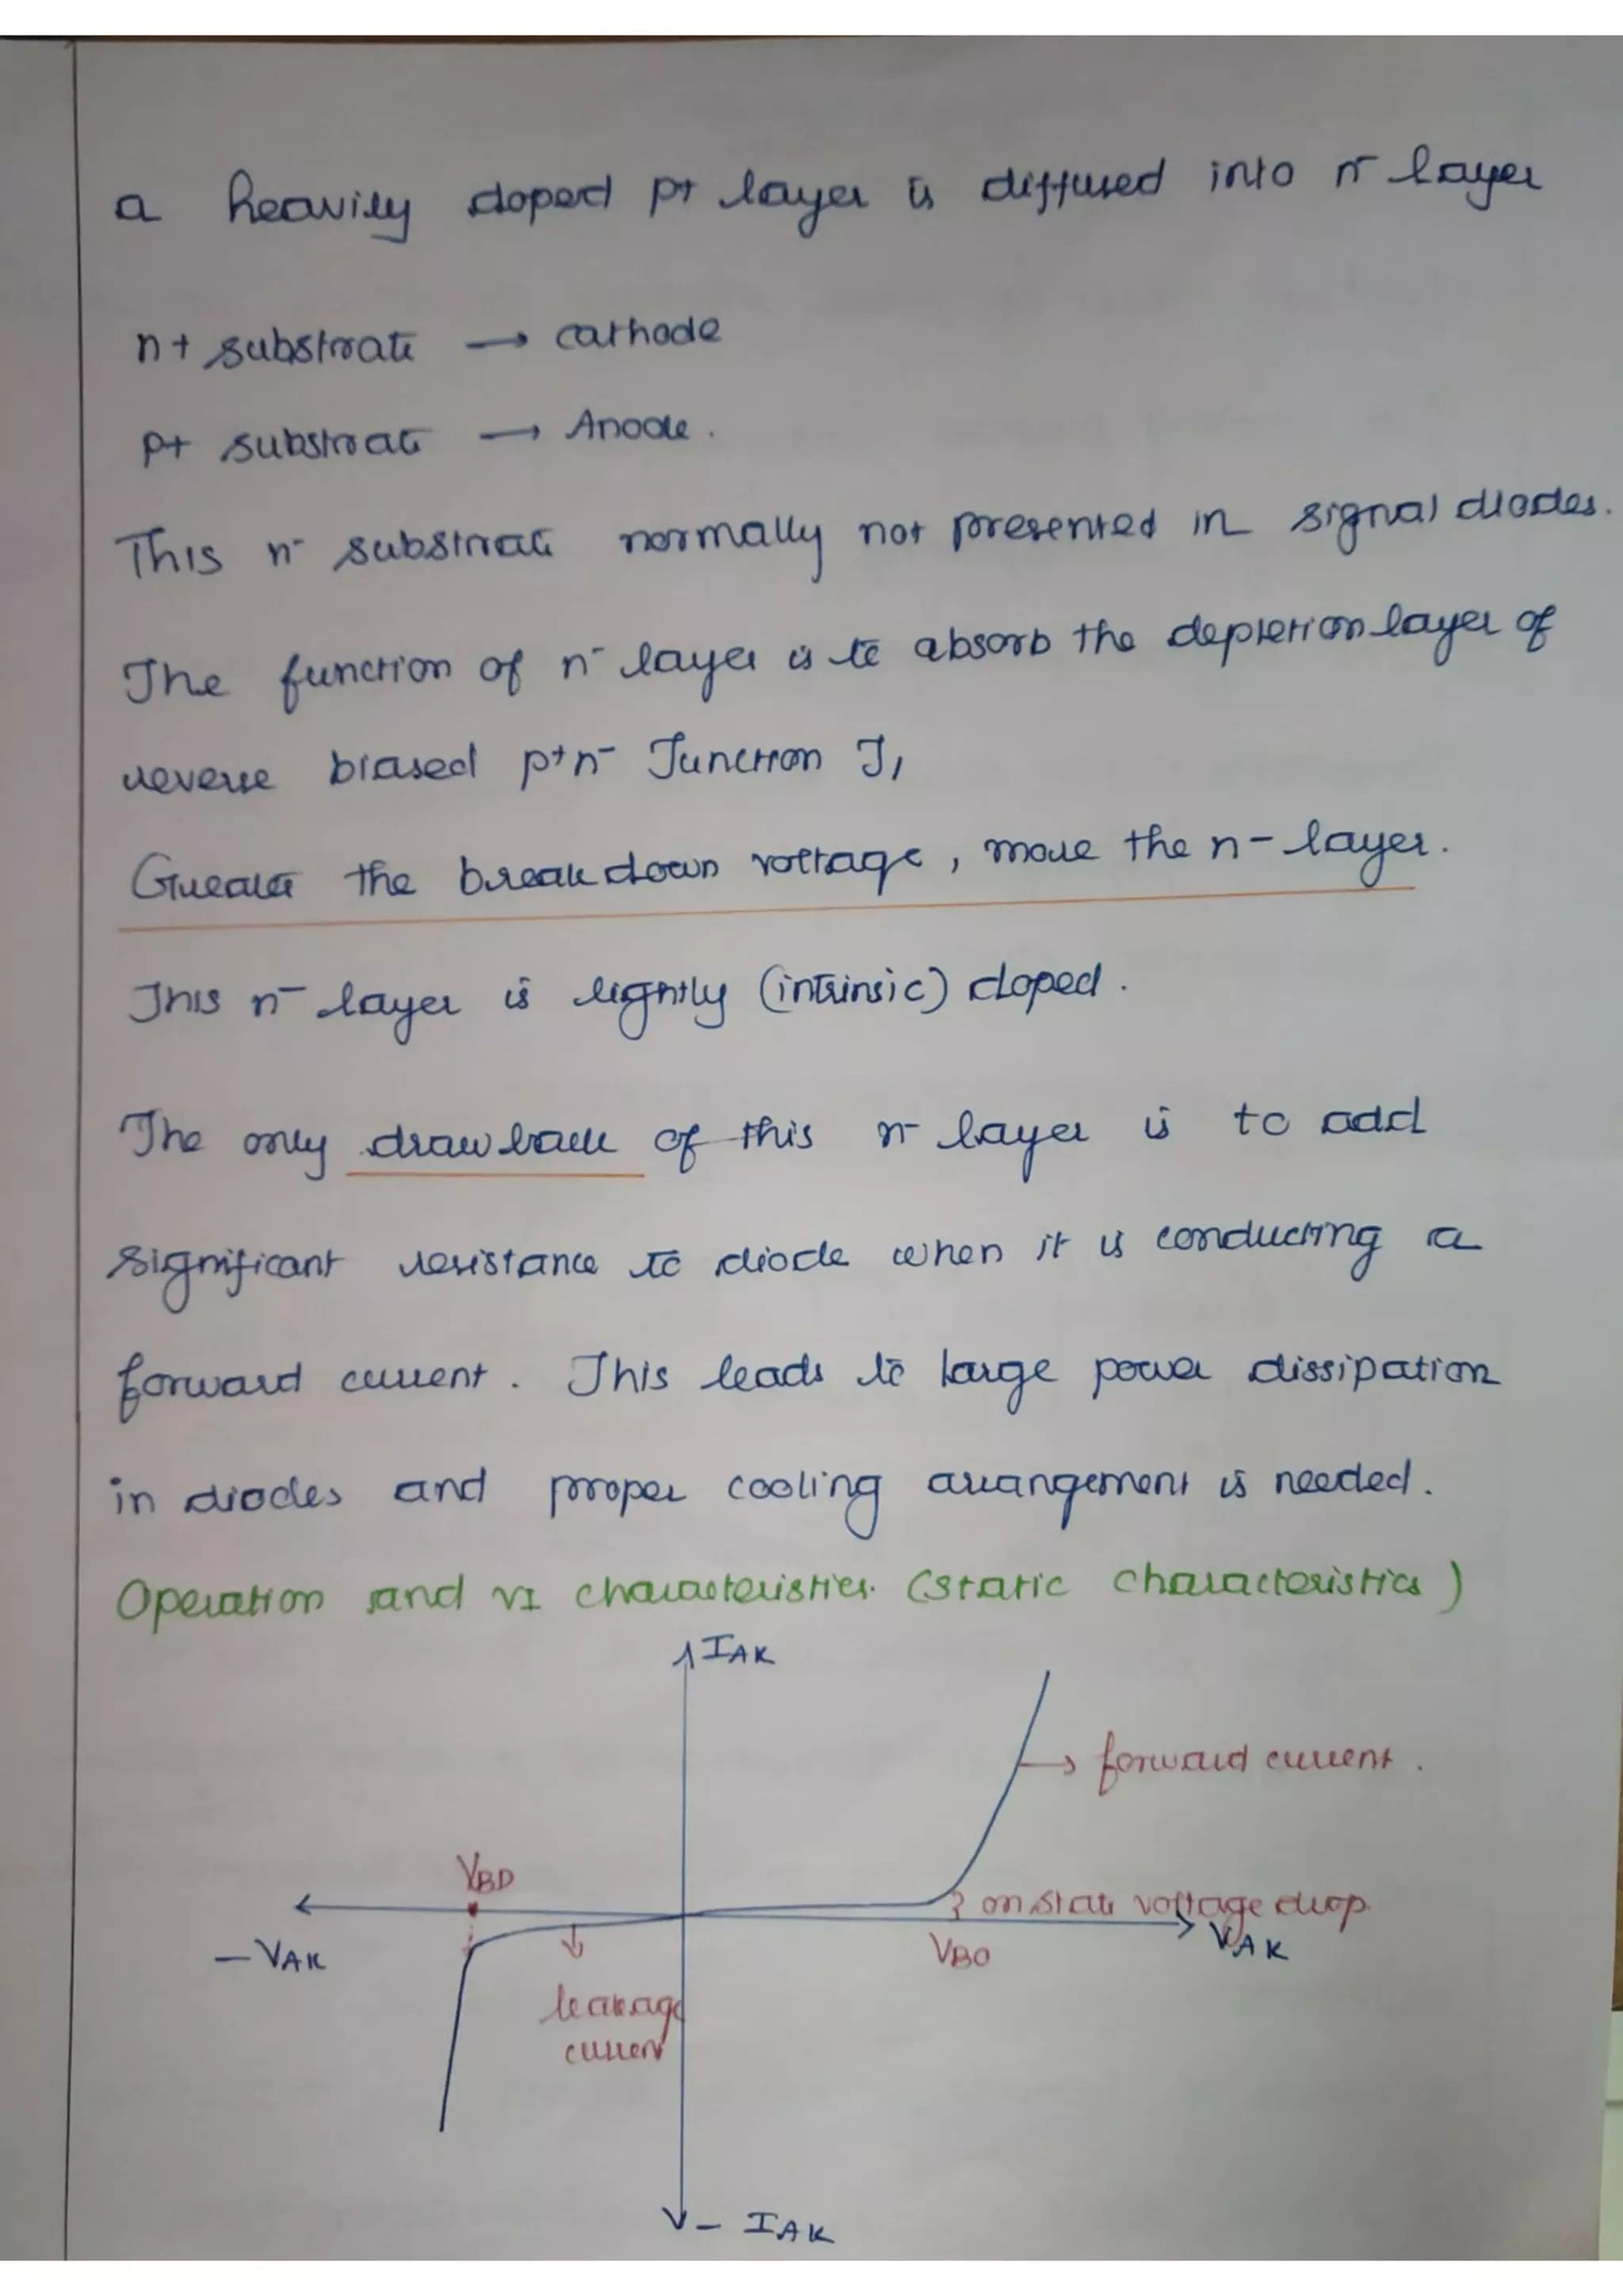 a heavily doped p+ layer is diffused into n- layer
n+ substrate → cathode
p+ substrate → Anode.
This n- substrate normally not presented in signal diodes.
The function of n- layer is to absorb the depletion layer of
reverse biased p+n- Junction J1
Greater the breakdown voltage, more the n- layer.
This n- layer is lightly (intrinsic) doped.
The only drawback of this n- layer is to add
significant resistance to diode when it is conducting a
forward current. This leads to large power dissipation
in diodes and proper cooling arrangement is needed.
Operation and VI characteristics. (Static characteristics)
IAK
→ forward current.
VBD
on state voltage drop.
- VAK
VBO
VAK
leakage
current
- IAK